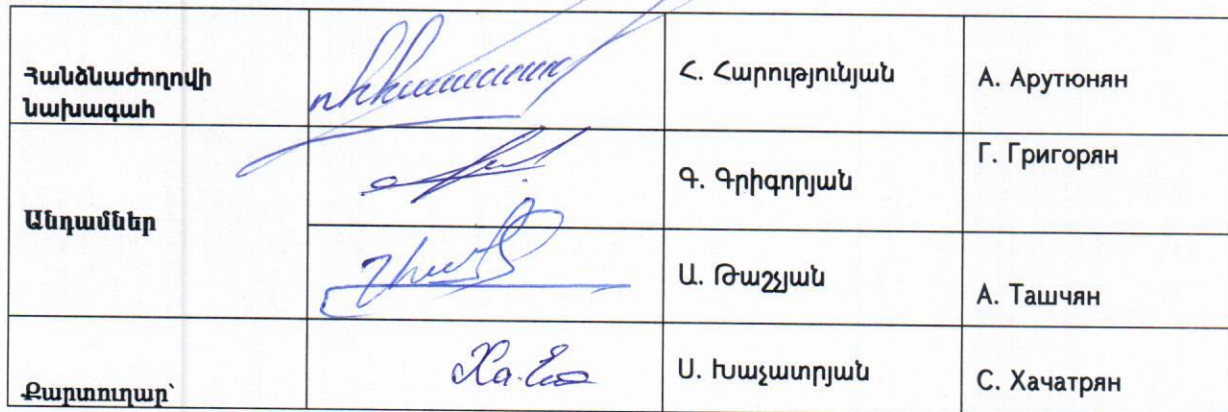 Հանձնաժողովի
նախագահ
Հ. Հարությունյան
А. Арутюнян
Անդամներ
Գ. Գրիգորյան
Г. Григорян
Ա. Թաշչյան
А. Ташчян
Քարտուղար՝
Ս. Խաչատրյան
С. Хачатрян